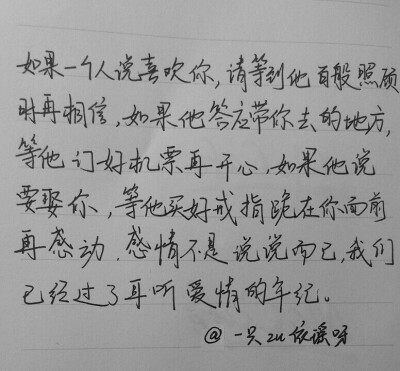 如果一个人说喜欢你,请等到他百般照顾
时再相信,如果他答应带你去的地方,
等他订好机票再开心,如果他说
要娶你,等他买好戒指跪在你面前
再感动.感情不是说说而已,我们
已经过了耳听爱情的年纪。
@一只zu依谣呀